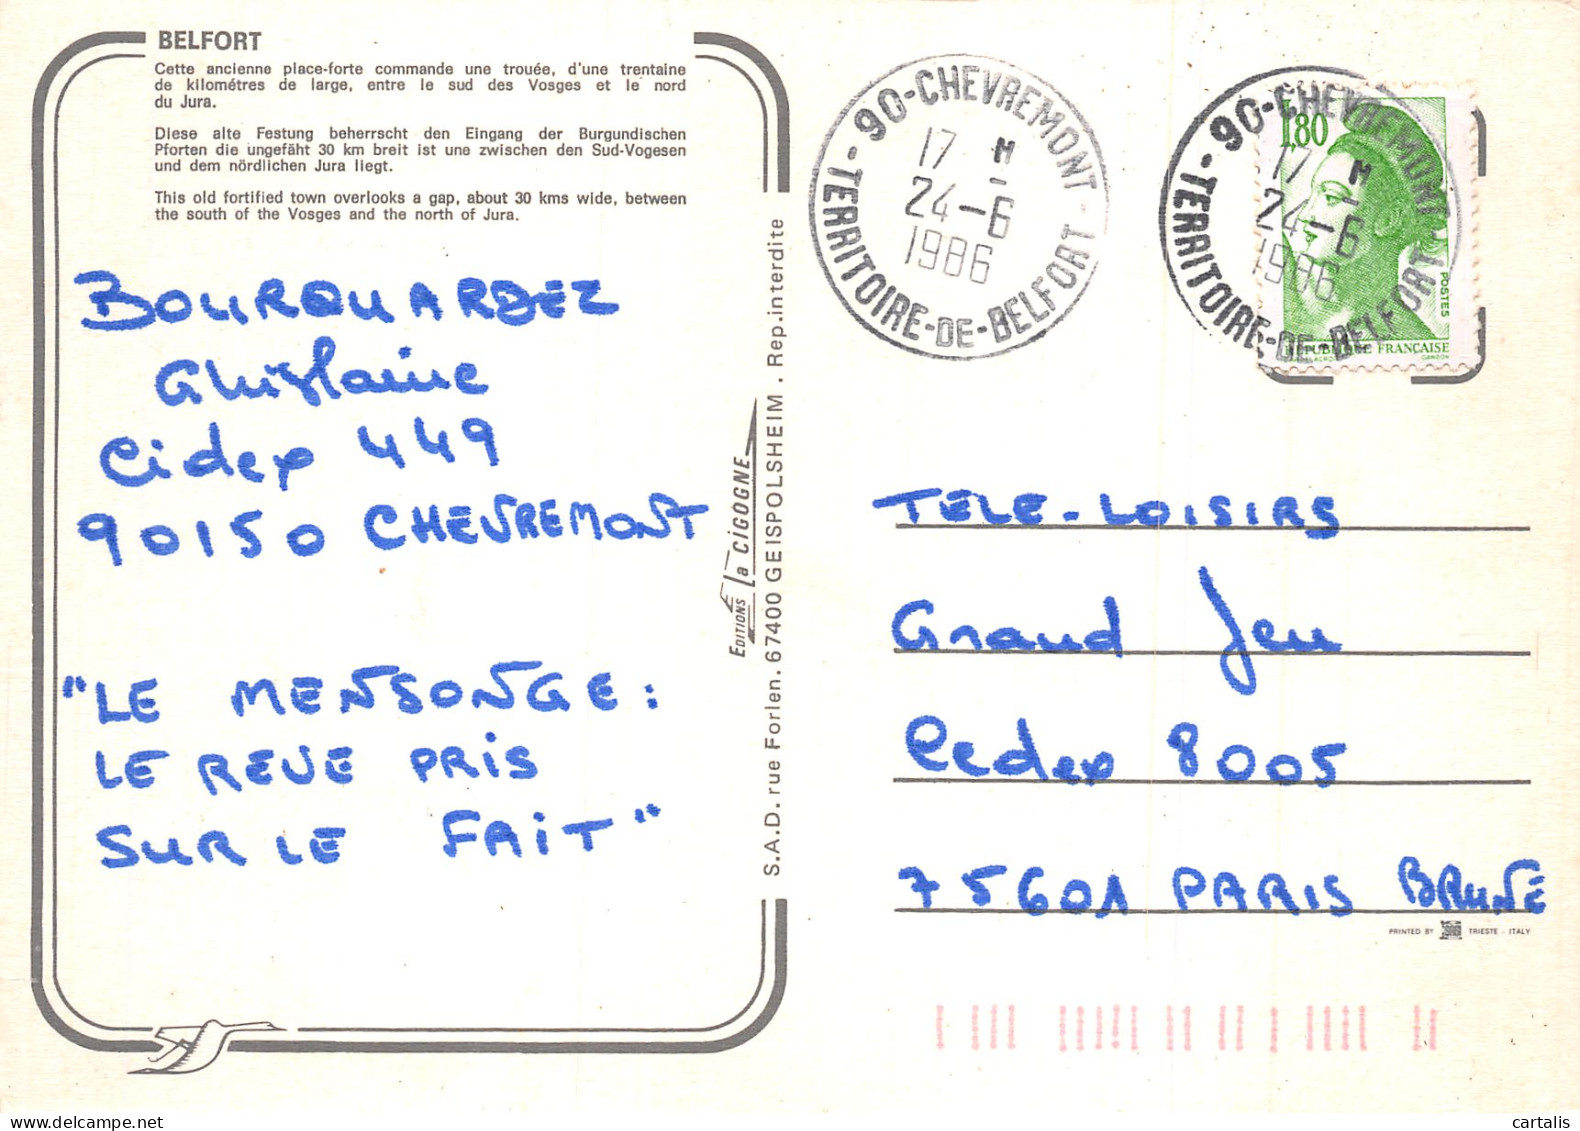 BELFORT
Cette ancienne place-forte commande une trouée, d'une trentaine
de kilométres de large, entre le sud des Vosges et le nord
du Jura.
Diese alte Festung beherrscht den Eingang der Burgundischen
Pforten die ungefäht 30 km breit ist une zwischen den Sud-Vogesen
und dem nördlichen Jura liegt.
This old fortified town overlooks a gap, about 30 kms wide, between
the south of the Vosges and the north of Jura.
BOURQUARDEZ
Ghislaine
Cidex 449
90150 CHEVREMONT
"LE MENSONGE:
LE REVE PRIS
SUR LE FAIT"
EDITIONS La CIGOGNE
S.A.D. rue Forlen. 67400 GEISPOLSHEIM. Rep.interdite
90-CHEVREMONT
17 H
24-6
1986
-TERRITOIRE-DE-BELFORT-
90-CHEVREMONT
17 H
24-6
1986
-TERRITOIRE-DE-BELFORT-
1,80
POSTES
RÉPUBLIQUE FRANÇAISE
GANDON
TELE-LOISIRS
Grand Jeu
Cedex 8005
75601 PARIS BRUNE
PRINTED BY TRIESTE - ITALY
cartalis